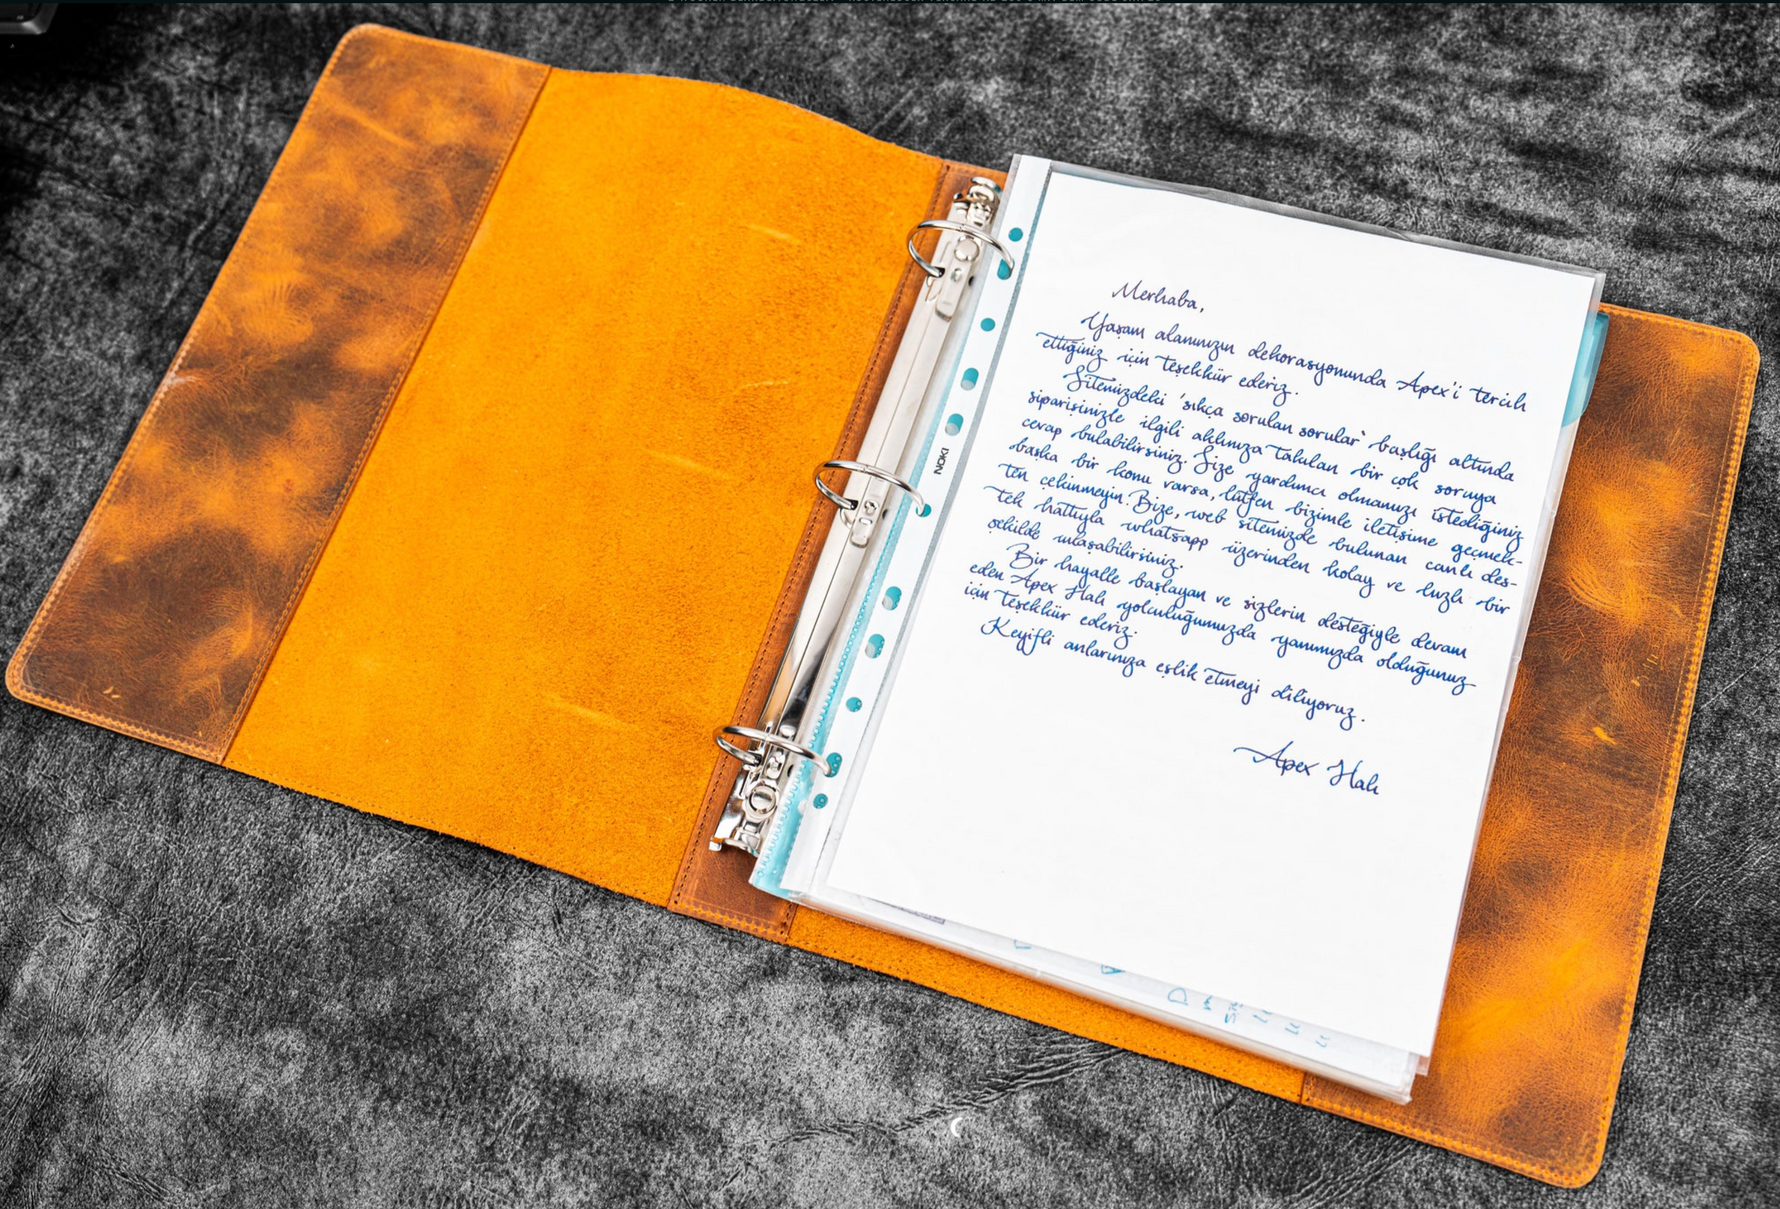 Merhaba,
Yaşam alanınızın dekorasyonunda Apex'i tercih
ettiğiniz için teşekkür ederiz.
Sitemizdeki 'sıkça sorulan sorular' başlığı altında
siparişinizle ilgili aklınıza takılan bir çok soruya
cevap bulabilirsiniz. Size yardımcı olmamızı istediğiniz
başka bir konu varsa, lütfen bizimle iletişime geçmek-
ten çekinmeyin. Bize, web sitemizde bulunan canlı des-
tek hattıyla whatsapp üzerinden kolay ve hızlı bir
şekilde ulaşabilirsiniz.
Bir hayalle başlayan ve sizlerin desteğiyle devam
eden Apex Halı yolculuğumuzda yanımızda olduğunuz
için teşekkür ederiz.
Keyifli anlarınıza eşlik etmeyi diliyoruz.
Apex Halı
NOKI